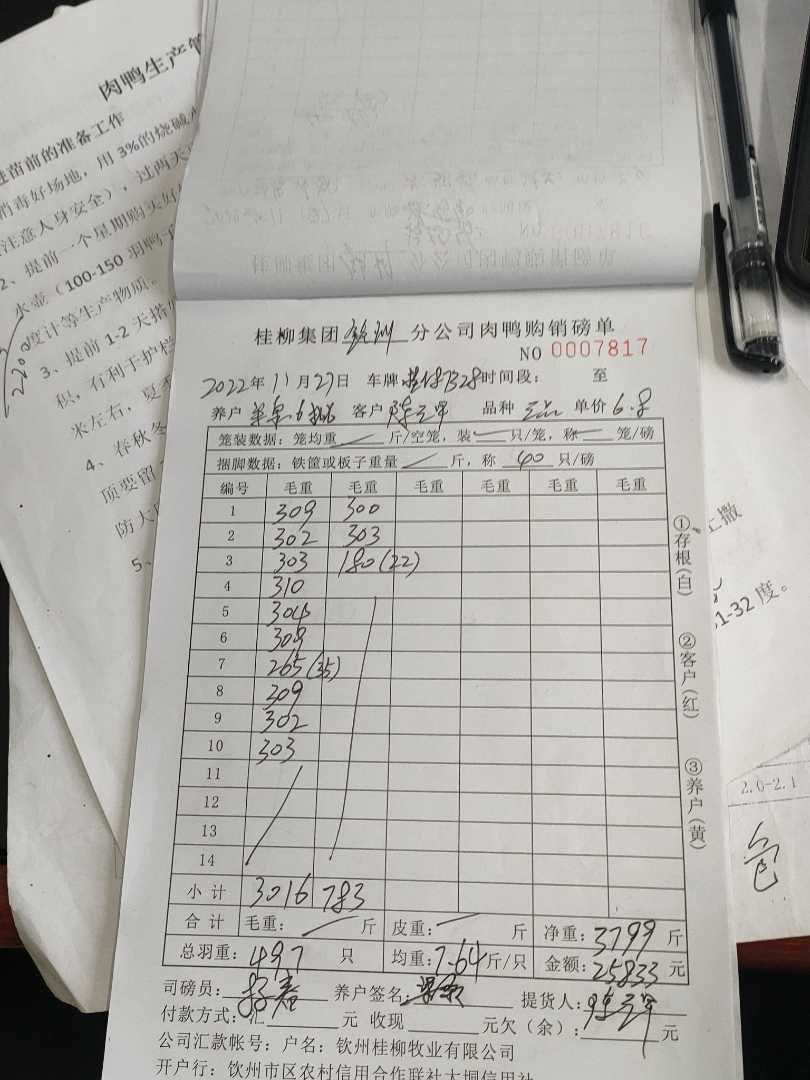 肉鸭生产管
进苗前的准备工作
消毒好场地，用3%的烧碱
注意人身安全），过两天
2、提前一个星期购买好
水壶（100-150羽鸭子
度计等生产物质。
3、提前1-2天搭
积，有利于护栏
米左右，夏季
4、春秋冬
顶要留
防大
5、
桂柳集团钦州分公司肉鸭购销磅单
NO 0007817
2022年11月27日 车牌 B28时间段： 至
养户 6 客户 陈 品种 单价6.8
笼装数据：笼均重 斤/空笼，装 只/笼，称 笼/磅
捆脚数据：铁筐或板子重量 斤，称 40 只/磅
编号 毛重 毛重 毛重 毛重 毛重 毛重
1 309 300
2 302 303
3 303 180(22)
4 310
5 304
6 309
7 265(35)
8 309
9 302
10 303
11
12
13
14
小计 3016 783
合计 毛重： 斤 皮重： 斤 净重：3799斤
总羽重：497 只 均重：7.64斤/只 金额：25833元
司磅员： 养户签名： 提货人：陈
付款方式：汇 元 收现 元欠（余）： 元
公司汇款帐号：户名：钦州桂柳牧业有限公司
开户行：钦州市区农村信用合作联社大垌信用社
①存根(白)
②客户(红)
③养户(黄)
撒
31-32度。
2.0-2.1